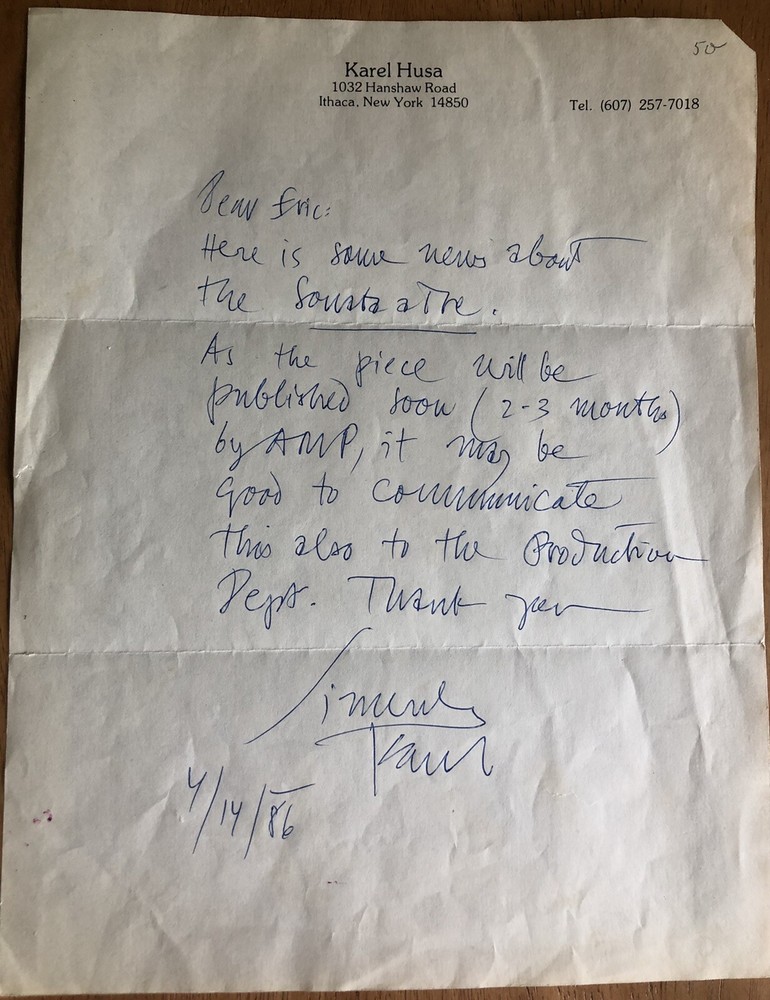 50
Karel Husa
1032 Hanshaw Road
Ithaca, New York 14850
Tel. (607) 257-7018
Dear Eric:
Here is some news about
the Sonata a Tre.
As the piece will be
published soon (2-3 months)
by AMP, it may be
good to communicate
this also to the Production
Dept. Thank you
Sincerely
Karel
4/14/86